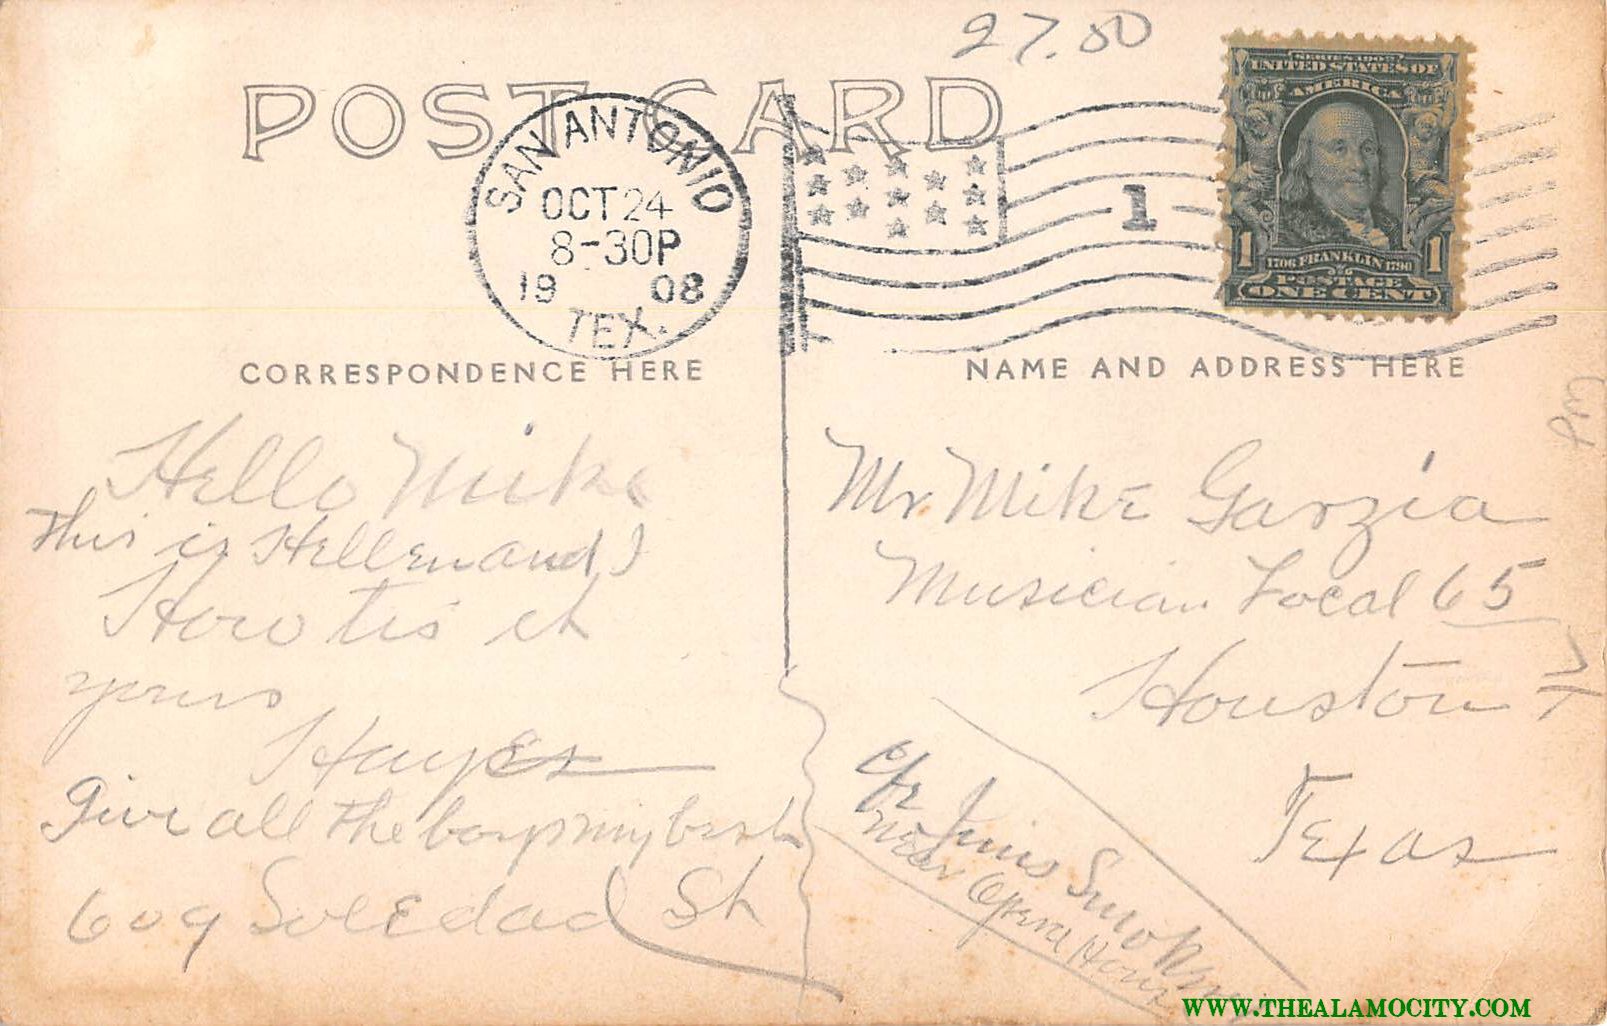 27.00
POST CARD
SAN ANTONIO
OCT 24
8-30P
19 08
TEX.
1
SERIES 1902
UNITED STATES OF
AMERICA
1 1706 FRANKLIN 1790 1
POSTAGE
ONE CENT
CORRESPONDENCE HERE
NAME AND ADDRESS HERE
Hello Mike
this is Hellen and I
How tis it
yours
Hayes
Give all the boys my best
609 Soledad St
Mr Mike Garzia
Musician Local 65
Houston
Texas
c/o Smok
near Opera House
WWW.THEALAMOCITY.COM